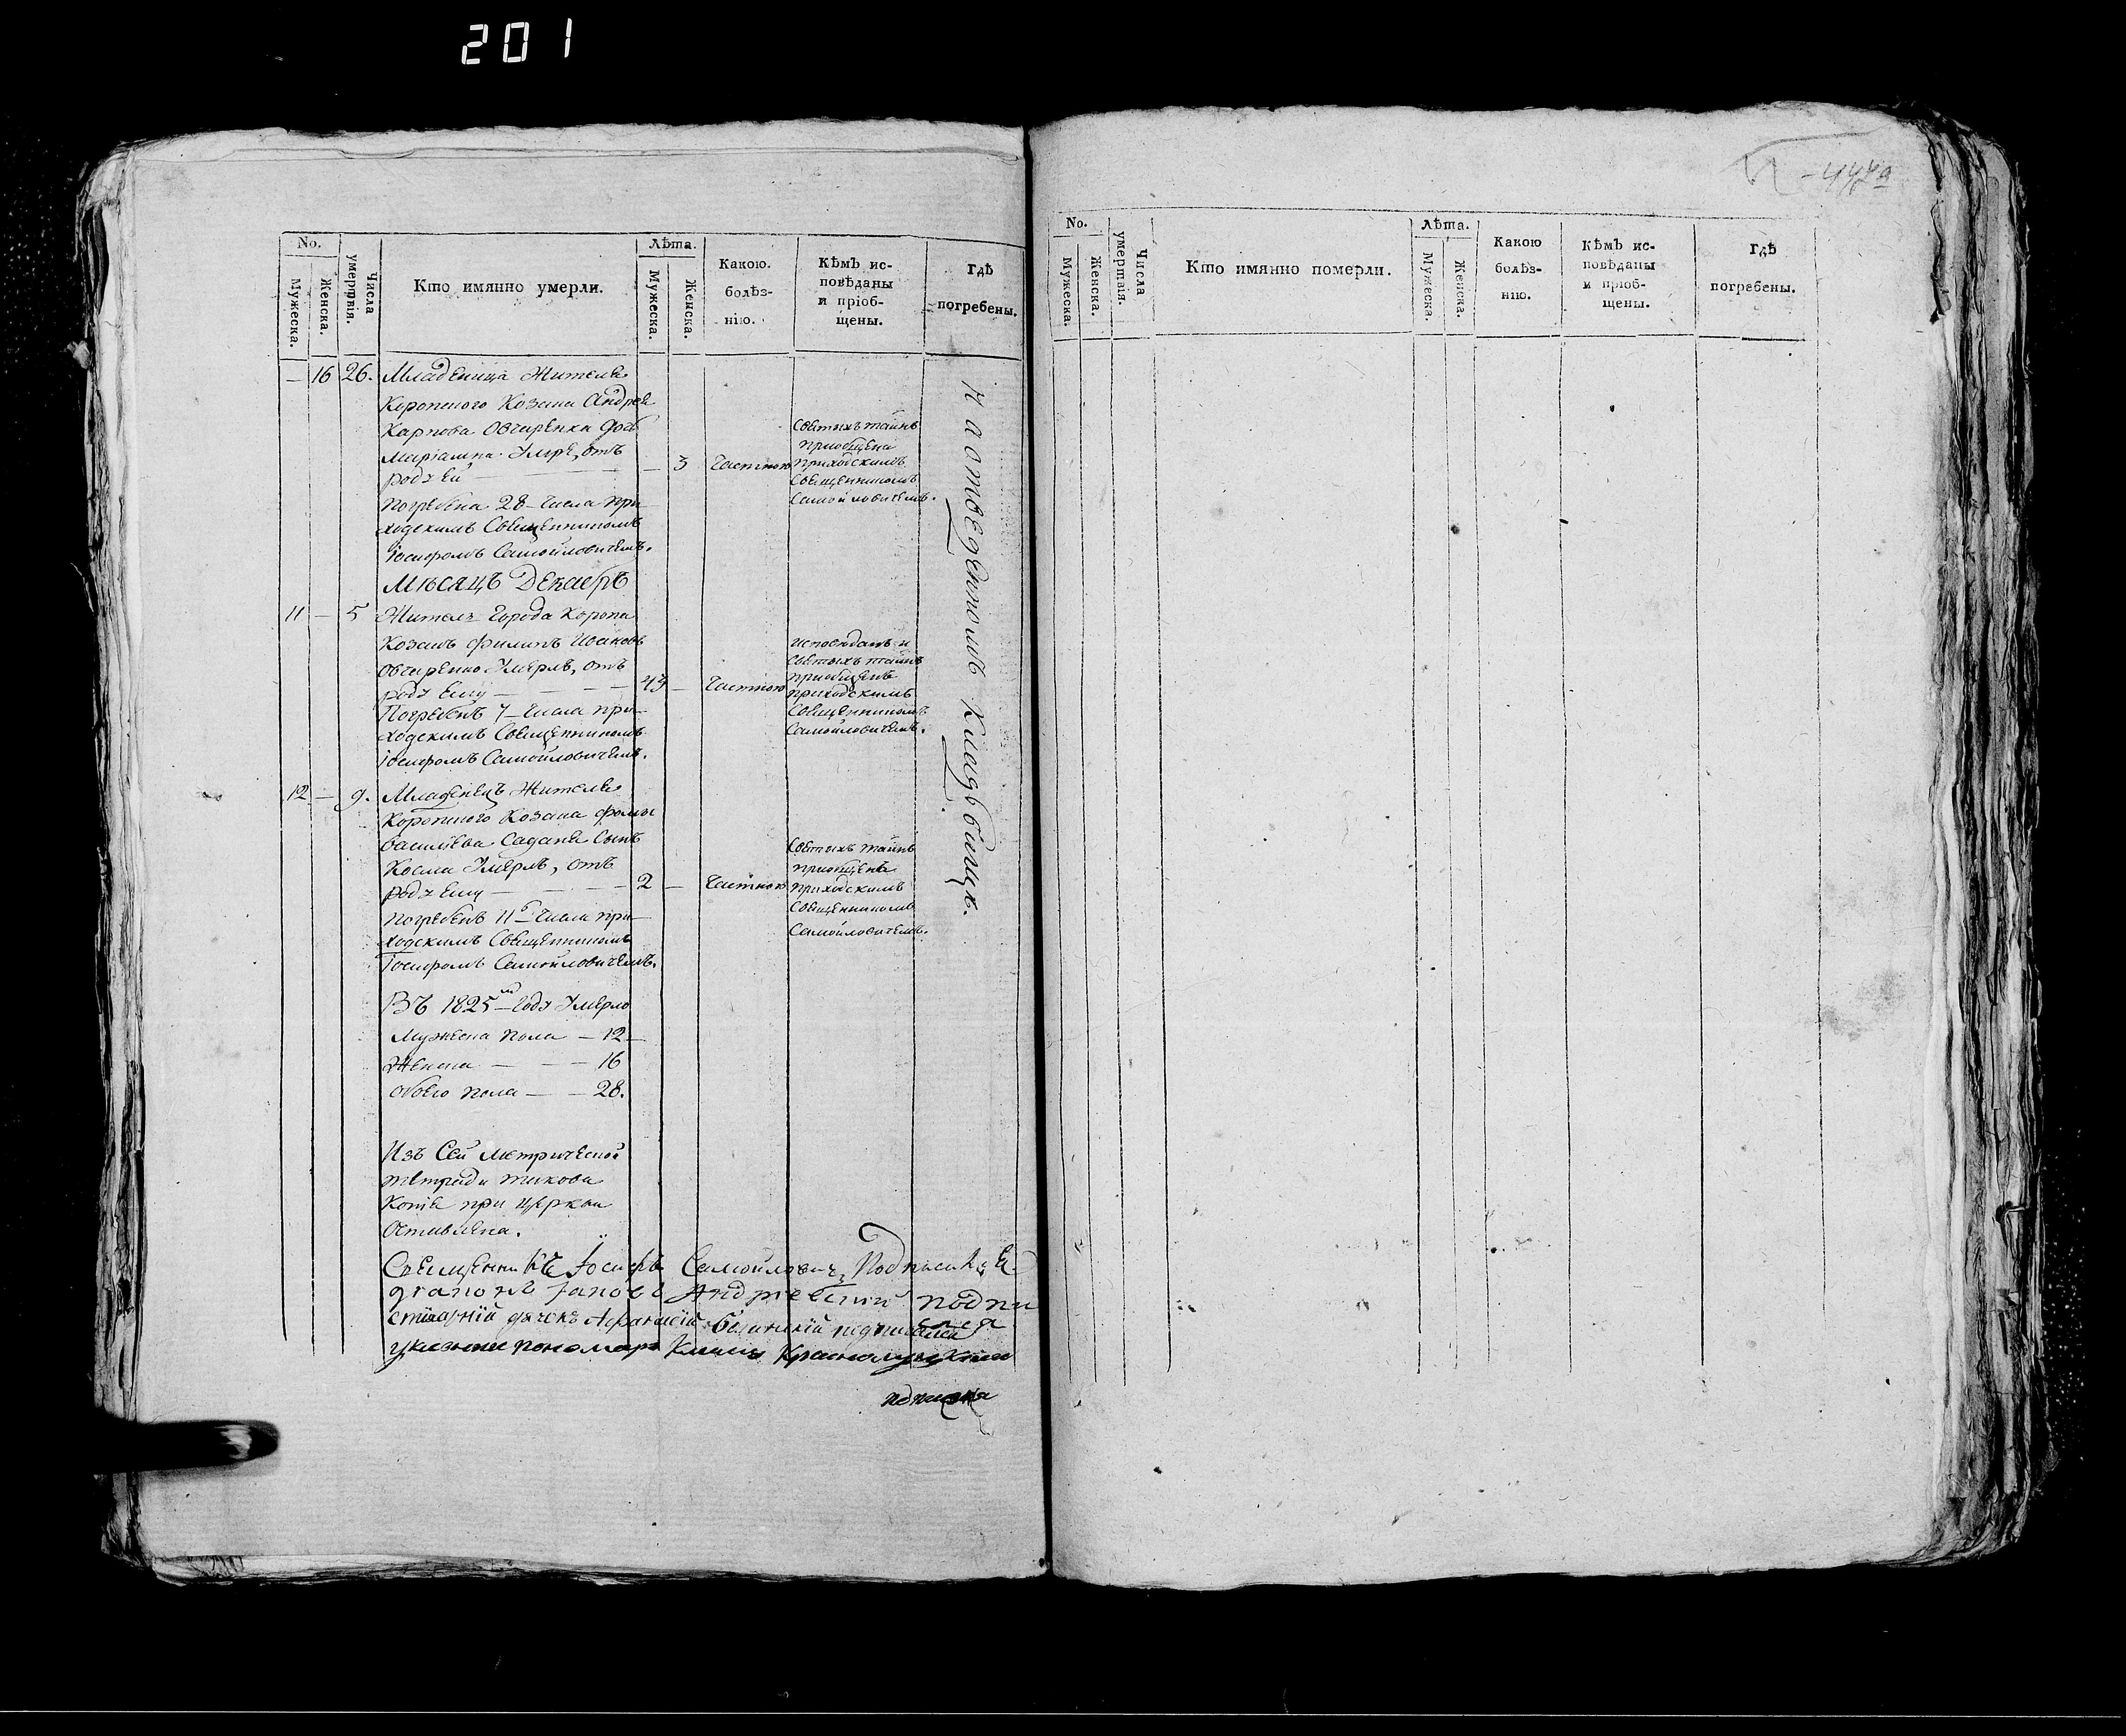 201
No.
Мужеска.
Женска.
Числа умертвія.
Кто имянно умерли.
Лѣта.
Мужеска.
Женска.
Какою. болѣз-
нію.
Кѣмъ ис-
повѣданы
и пріоб-
щены.
Гдѣ
погребены.
— 16 26. Младеница Жителя
Коропского Козака Андрея
Карпова Овчаренка дочь
Маріамна Умре, отъ
роду ей — 3 Чистною
Погребена 28 числа при
ходскимъ Священникомъ
Іосифомъ Самойловичемъ.
Святыхъ тайнъ
приобщена
приходскимъ
Священникомъ
Самойловичемъ.
На отведенномъ кладьбищѣ.
Мѣсяцъ Декабрь
11 — 5 Житель города Коропа
Козакъ Филипъ Ивановъ
Овчаренко Умерлъ, отъ
роду ему — — 43 —
Погребенъ 7 числа при
ходскимъ Священникомъ
Іосифомъ Самойловичемъ.
Исповѣданъ и
Святыхъ тайнъ
приобщенъ
приходскимъ
Священникомъ
Самойловичемъ.
12 — 9. Младенецъ Жителя
Коропского Козака Фомы
Василіева Сын
Косма Умерлъ, отъ
роду ему — — 2 —
Погребенъ 11 числа при
ходскимъ Священникомъ
Іосифомъ Самойловичемъ.
Святыхъ тайнъ
приобщенъ
приходскимъ
Священникомъ
Самойловичемъ.
Въ 1825м Году Умерло
Мужеска пола — 12
Женска — — 16
Обоего пола — — 28.
Изъ Сей Метрической
тетради такова
Копія при церкви
Оставлена.
Священникъ Іосифъ Самойловичъ Подписался
Андріевскій подпи
дячокъ Афанасій подписался
указный пономарь
No.
Мужеска.
Женска.
Числа умертвія.
Кто имянно померли.
Лѣта.
Мужеска.
Женска.
Какою
болѣз-
нію.
Кѣмъ ис-
повѣданы
и пріоб-
щены.
Гдѣ
погребены.